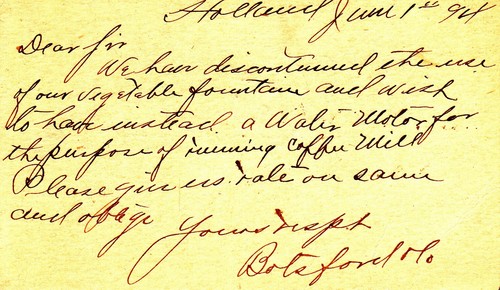 Holland June 1st 94
Dear Sir
We have discontinued the use
of our vegetable fountain and wish
to have instead a Water Motor for
the purpose of running coffee Mill
Please give us rate on same
and oblige
Yours respt
Botsford & Co